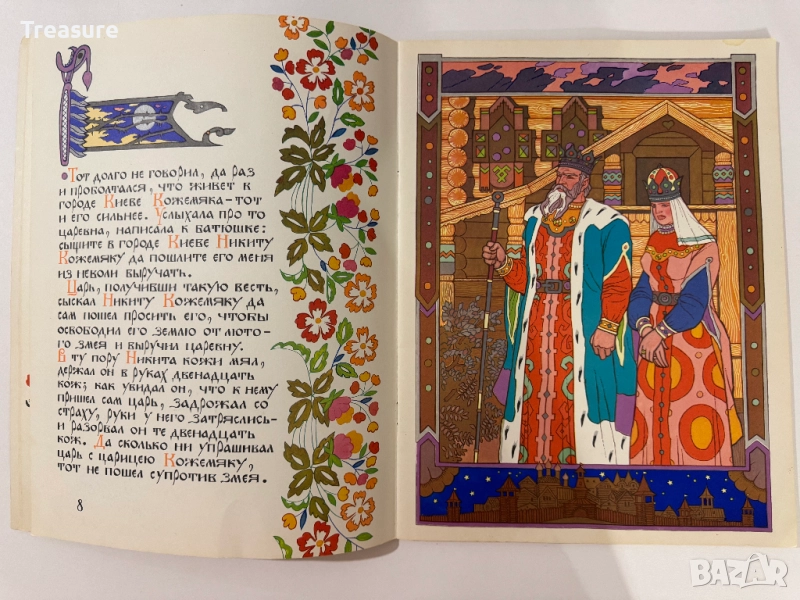 Treasure
Тот долго не говорил, да раз
и проболтался, что живет к
городе Киеве Кожемяка - тот
и его сильнее. Услыхала про то
царевна, написала к батюшке:
сыщите в городе Киеве Никиту
Кожемяку да пошлите его меня
из неволи выручать.
Царь, получивши такую весть,
сыскал Никиту Кожемяку да
сам пошел просить его, чтобы
освободил его землю от люто-
го змея и выручил царевну.
В ту пору Никита кожи мял,
держал он в руках двенадцать
кож; как увидал он, что к нему
пришел сам царь, задрожал со
страху, руки у него затряслись-
и разорвал он те двенадцать
кож. Да сколько ни упрашивал
царь с царицею Кожемяку,
тот не пошел супротив змея.
8
BAZAR